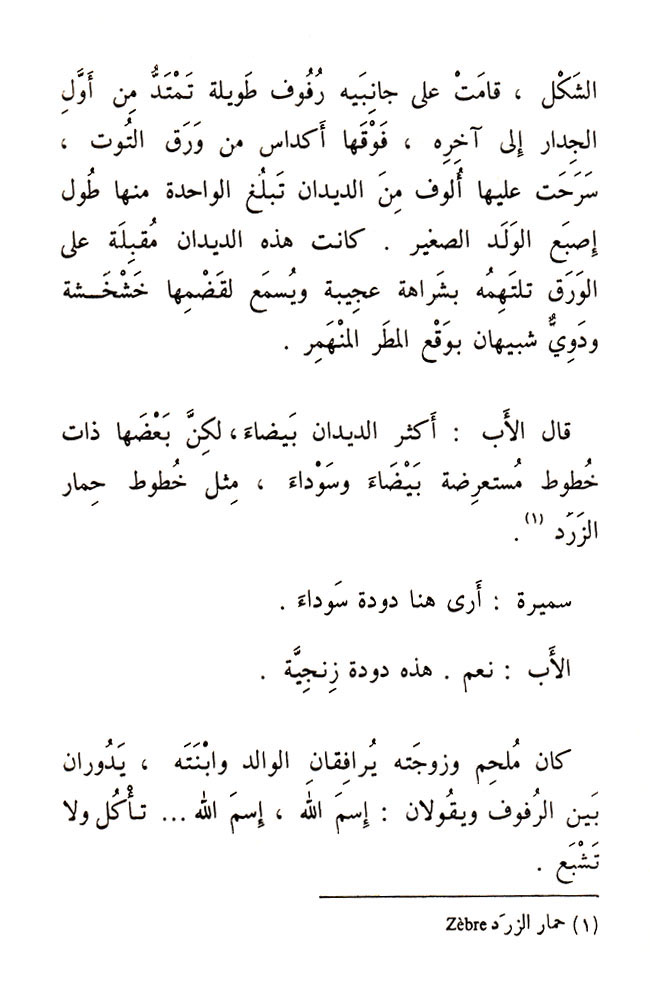 الشَكْل ، قامَتْ على جانِبَيه رُفُوف طَويلة تَمْتَدُّ مِن أَوَّلِ
الجِدار إلى آخِرِه ، فَوْقَها أَكداس من وَرَق التُوت ،
سَرَحَت عليها أُلوف مِنَ الديدان تَبلُغ الواحدة منها طُول
إصبَع الوَلَد الصغير . كانت هذه الديدان مُقبِلَة على
الوَرَق تلتَهِمُه بشَراهة عجِيبة ويُسمَع لقَضْمِها خَشْخَـشة
ودَوِيٌّ شبيهان بوَقْع المطَر المنْهَمِر .
قال الأَب : أَكثر الديدان بَيضاءَ ، لكِنَّ بَعْضَها ذات
خُطوط مُستعرِضة بَيْضَاءَ وسَوْداءَ ، مِثل خُطوط حِمار
الزَرَد (١) .
سميرة : أَرى هنا دودة سَوداءَ .
الأَب : نعم . هذه دودة زِنجِيَّة .
كان مُلحِم وزوجَته يُرافِقانِ الوالد وابْنَتَه ، يَدُوران
بَين الرُفوف ويقُولان : إسمَ الله ، إسمَ الله ... تأْكُل ولا
تَشْبَع .
(١) حمار الزرَد Zèbre